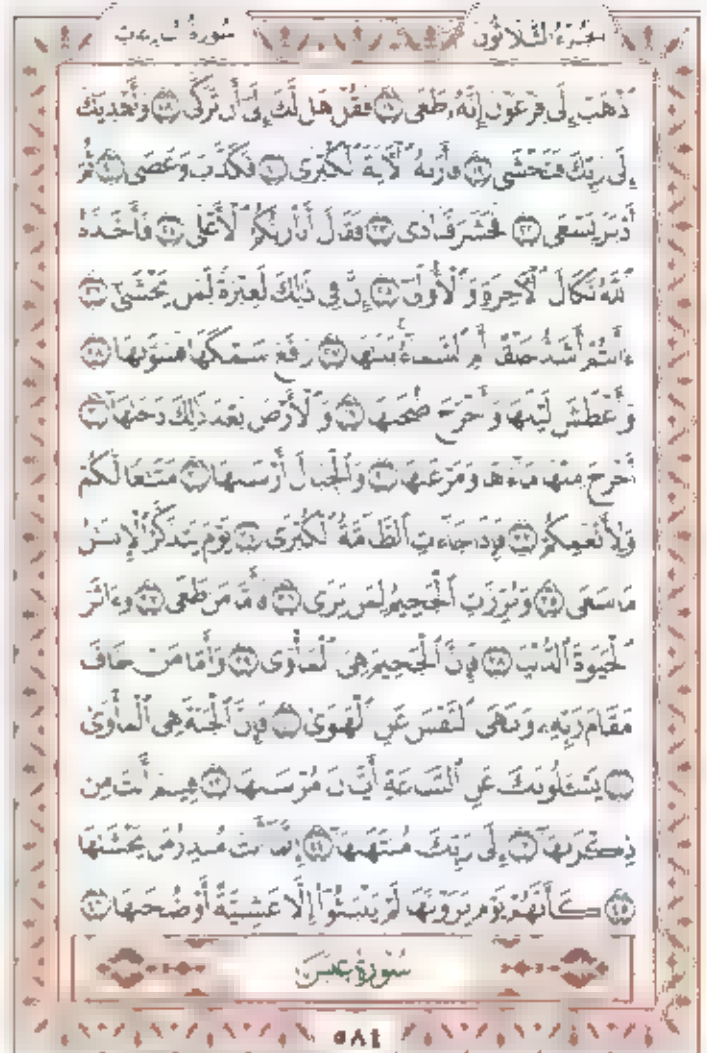 سُورَةُ النَّازِعَاتِ الجُزْءُ الثَّلَاثُونَ
ٱذْهَبْ إِلَىٰ فِرْعَوْنَ إِنَّهُۥ طَغَىٰ ١٧ فَقُلْ هَل لَّكَ إِلَىٰٓ أَن تَزَكَّىٰ ١٨ وَأَهْدِيَكَ
إِلَىٰ رَبِّكَ فَتَخْشَىٰ ١٩ فَأَرَىٰهُ ٱلْـَٔايَةَ ٱلْكُبْرَىٰ ٢٠ فَكَذَّبَ وَعَصَىٰ ٢١ ثُمَّ
أَدْبَرَ يَسْعَىٰ ٢٢ فَحَشَرَ فَنَادَىٰ ٢٣ فَقَالَ أَنَا۠ رَبُّكُمُ ٱلْأَعْلَىٰ ٢٤ فَأَخَذَهُ
ٱللَّهُ نَكَالَ ٱلْـَٔاخِرَةِ وَٱلْأُولَىٰٓ ٢٥ إِنَّ فِي ذَٰلِكَ لَعِبْرَةً لِّمَن يَخْشَىٰٓ ٢٦
ءَأَنتُمْ أَشَدُّ خَلْقًا أَمِ ٱلسَّمَآءُ ۚ بَنَىٰهَا ٢٧ رَفَعَ سَمْكَهَا فَسَوَّىٰهَا ٢٨
وَأَغْطَشَ لَيْلَهَا وَأَخْرَجَ ضُحَىٰهَا ٢٩ وَٱلْأَرْضَ بَعْدَ ذَٰلِكَ دَحَىٰهَآ ٣٠
أَخْرَجَ مِنْهَا مَآءَهَا وَمَرْعَىٰهَا ٣١ وَٱلْجِبَالَ أَرْسَىٰهَا ٣٢ مَتَٰعًا لَّكُمْ
وَلِأَنْعَٰمِكُمْ ٣٣ فَإِذَا جَآءَتِ ٱلطَّآمَّةُ ٱلْكُبْرَىٰ ٣٤ يَوْمَ يَتَذَكَّرُ ٱلْإِنسَٰنُ
مَا سَعَىٰ ٣٥ وَبُرِّزَتِ ٱلْجَحِيمُ لِمَن يَرَىٰ ٣٦ فَأَمَّا مَن طَغَىٰ ٣٧ وَءَاثَرَ
ٱلْحَيَوٰةَ ٱلدُّنْيَا ٣٨ فَإِنَّ ٱلْجَحِيمَ هِيَ ٱلْمَأْوَىٰ ٣٩ وَأَمَّا مَنْ خَافَ
مَقَامَ رَبِّهِۦ وَنَهَى ٱلنَّفْسَ عَنِ ٱلْهَوَىٰ ٤٠ فَإِنَّ ٱلْجَنَّةَ هِيَ ٱلْمَأْوَىٰ
٤١ يَسْـَٔلُونَكَ عَنِ ٱلسَّاعَةِ أَيَّانَ مُرْسَىٰهَا ٤٢ فِيمَ أَنتَ مِن
ذِكْرَىٰهَآ ٤٣ إِلَىٰ رَبِّكَ مُنتَهَىٰهَآ ٤٤ إِنَّمَآ أَنتَ مُنذِرُ مَن يَخْشَىٰهَا
٤٥ كَأَنَّهُمْ يَوْمَ يَرَوْنَهَا لَمْ يَلْبَثُوٓا۟ إِلَّا عَشِيَّةً أَوْ ضُحَىٰهَا ٤٦
سُورَةُ عَبَسَ
٥٨٤